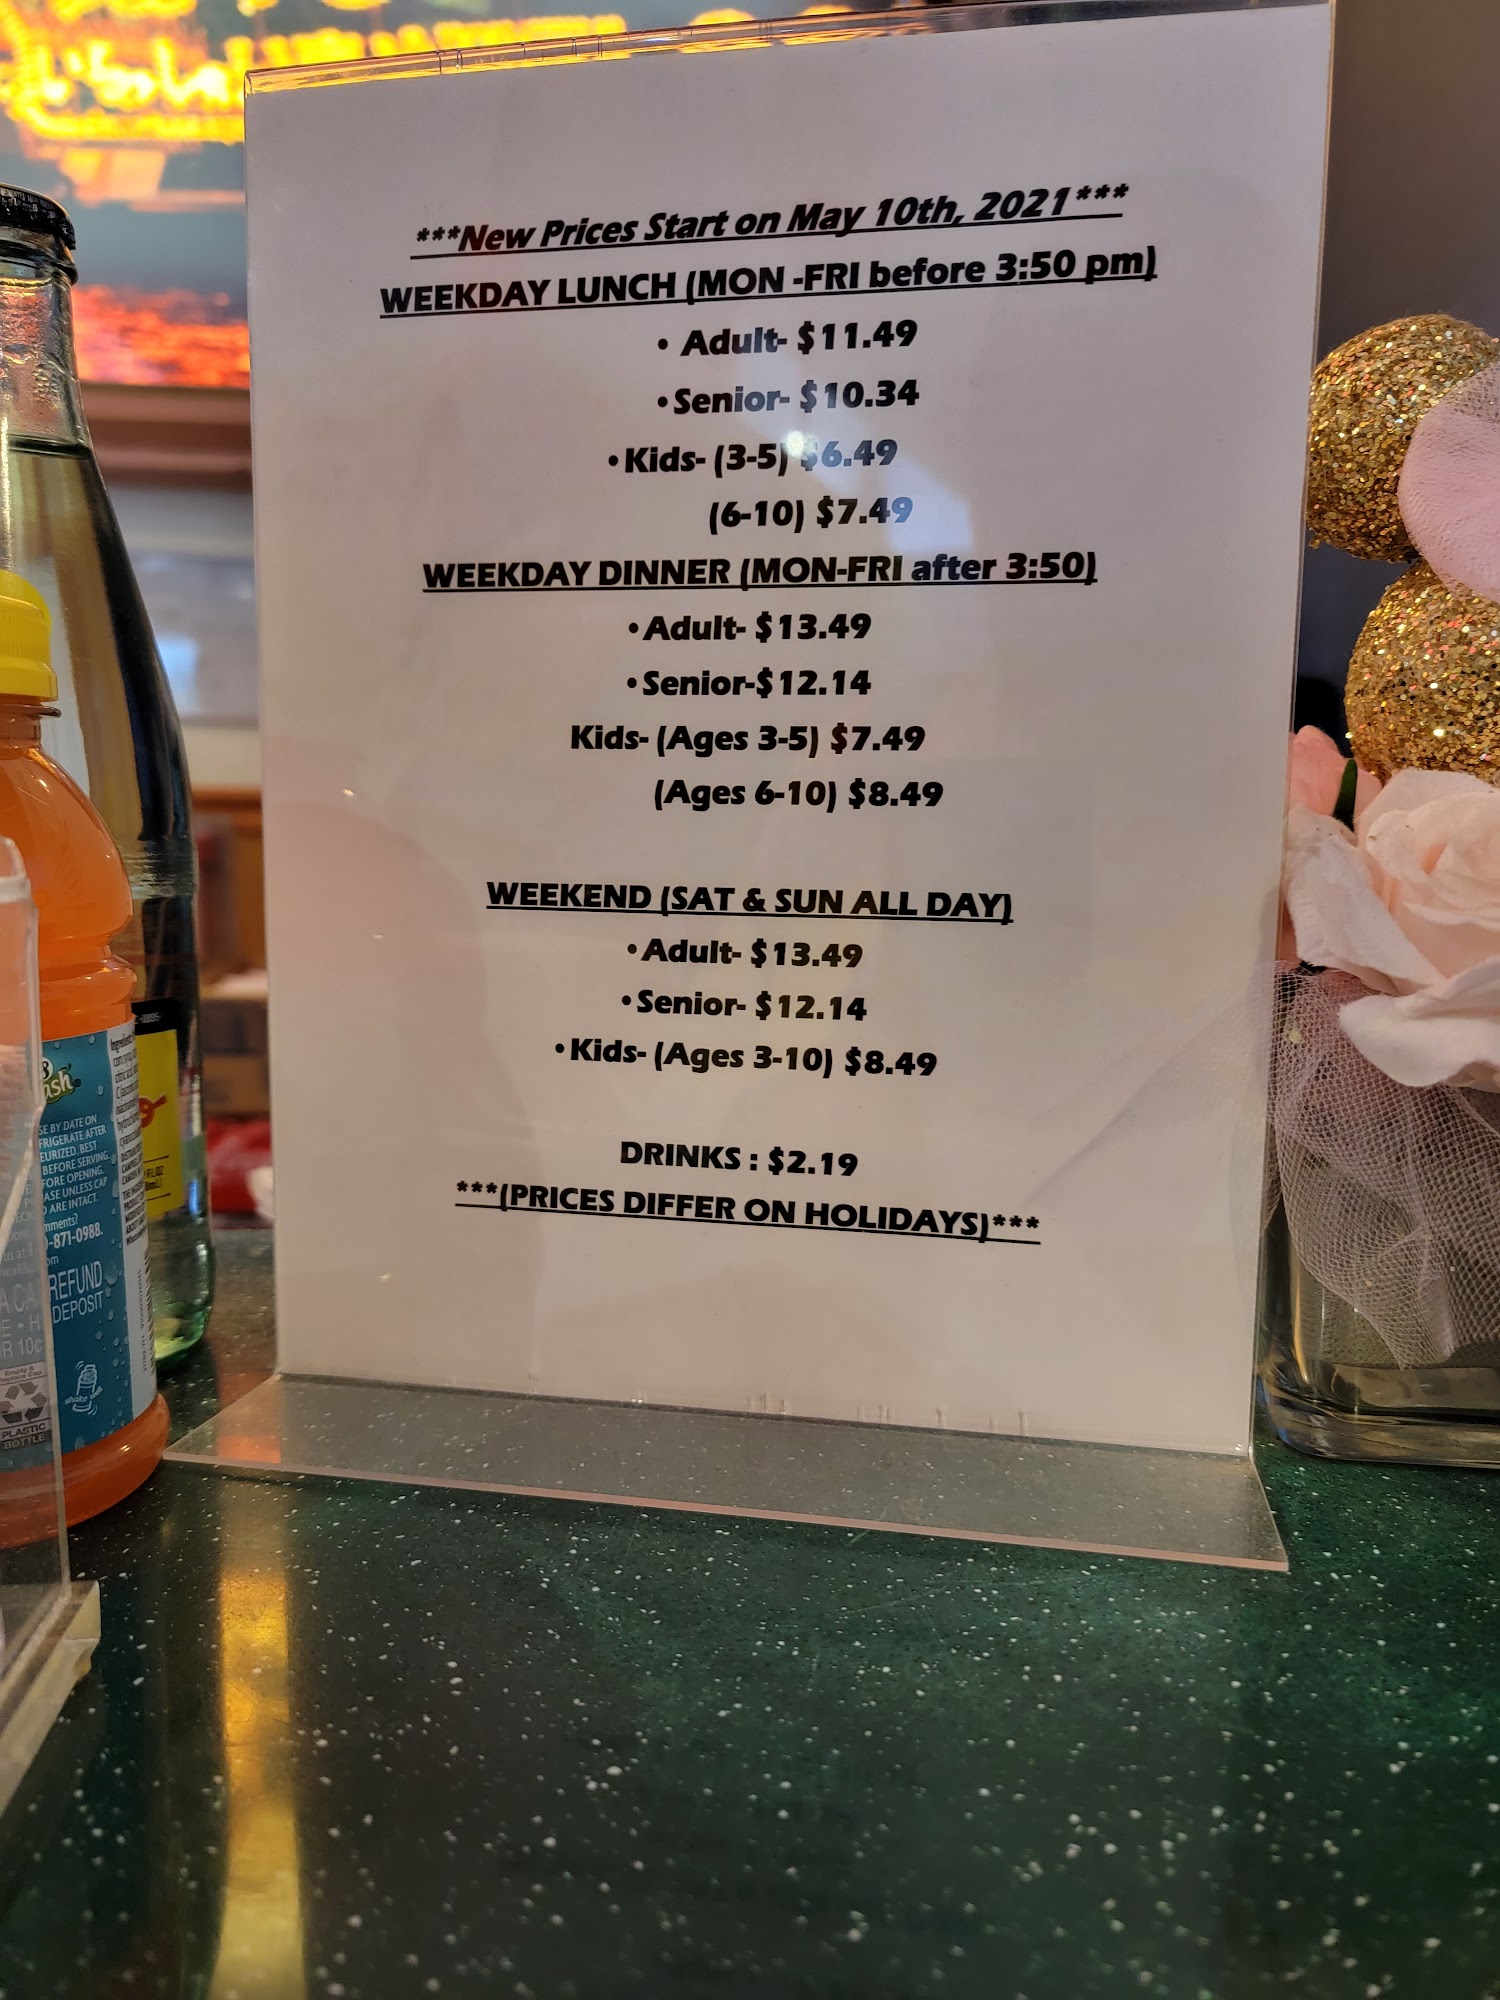 ***New Prices Start on May 10th, 2021***
WEEKDAY LUNCH (MON -FRI before 3:50 pm)
• Adult- $11.49
•Senior- $10.34
•Kids- (3-5) $6.49
(6-10) $7.49
WEEKDAY DINNER (MON-FRI after 3:50)
•Adult- $13.49
•Senior-$12.14
Kids- (Ages 3-5) $7.49
(Ages 6-10) $8.49
WEEKEND (SAT & SUN ALL DAY)
•Adult- $13.49
•Senior- $12.14
•Kids- (Ages 3-10) $8.49
DRINKS : $2.19
***(PRICES DIFFER ON HOLIDAYS)***
BY DATE ON
AFTER
BEST
BEFORE SERVING
OPENING.
UNLESS CAP
ARE INTACT.
-871-0988.
REFUND
DEPOSIT
10¢
PLASTIC
BOTTLE
shake